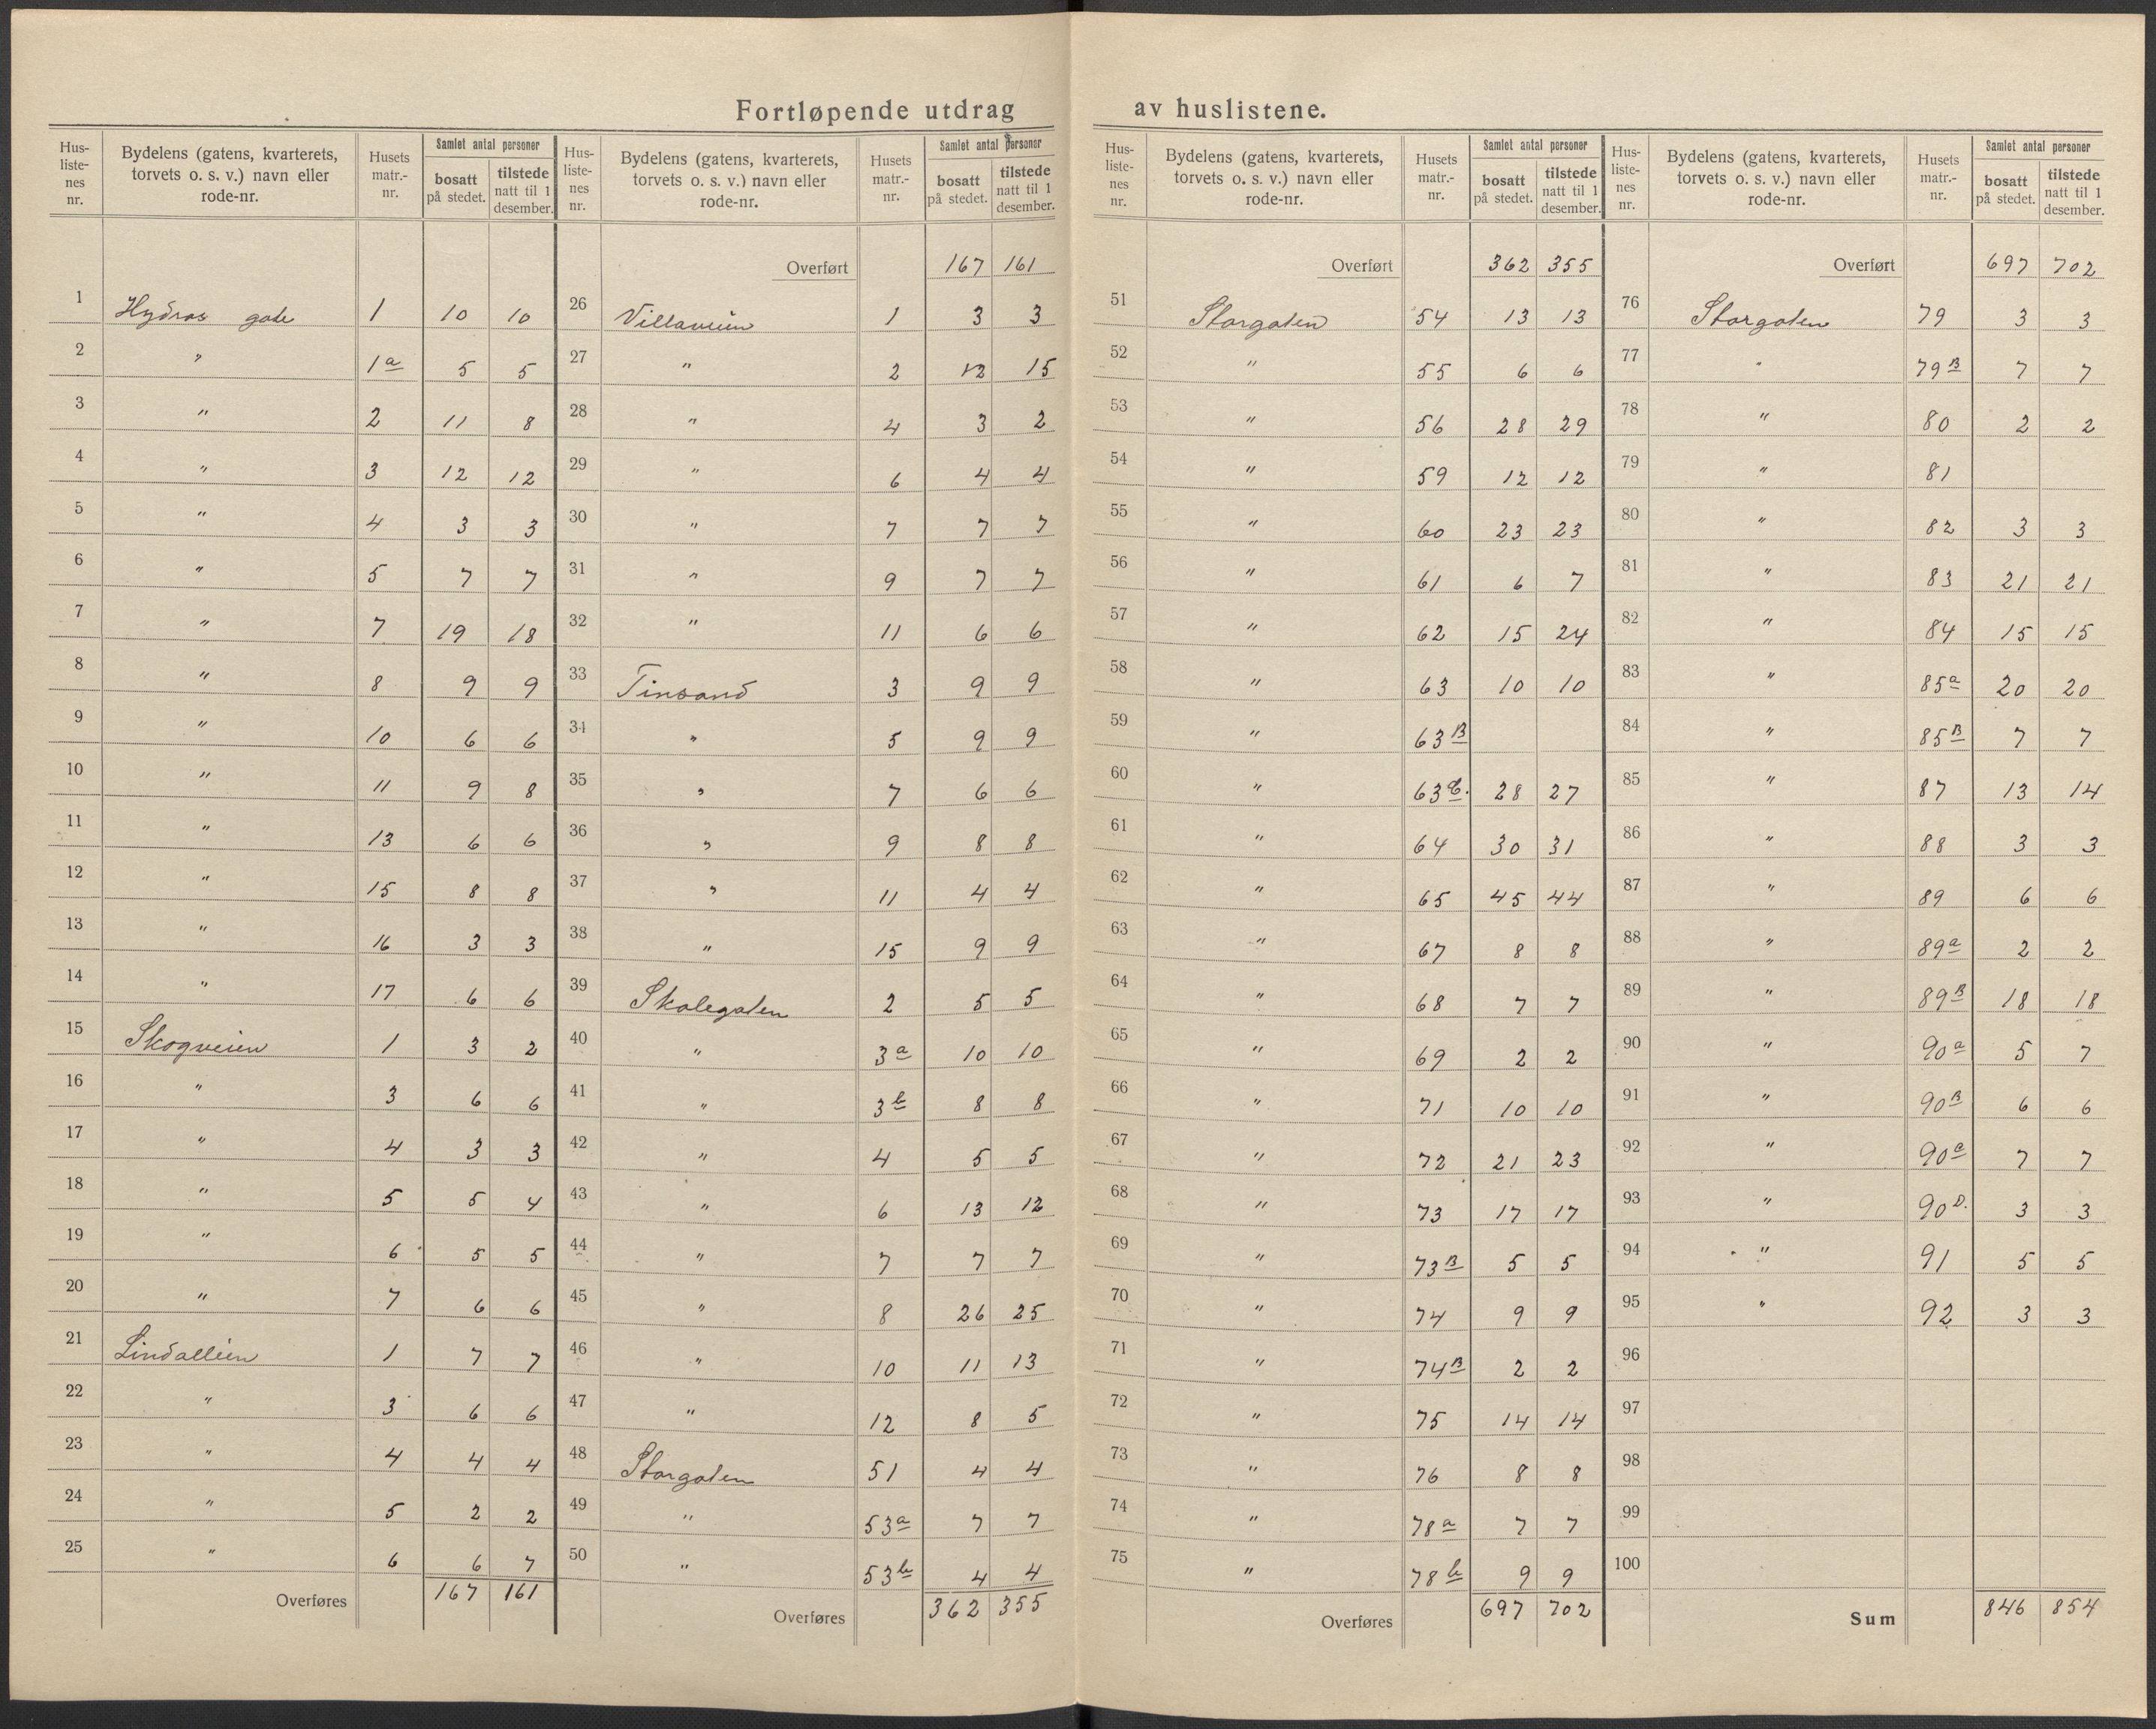 Fortløpende utdrag av huslistene.
Hus-liste-nes nr. | Bydelens (gatens, kvarterets, torvets o. s. v.) navn eller rode-nr. | Husets matr.-nr. | Samlet antal personer | bosatt på stedet. | tilstede natt til 1 desember.
1 Hydros gate 1 10 10
2 " 1a 5 5
3 " 2 11 8
4 " 3 12 12
5 " 4 3 3
6 " 5 7 7
7 " 7 19 18
8 " 8 9 9
9 " 10 6 6
10 " 11 9 8
11 " 13 6 6
12 " 15 8 8
13 " 16 3 3
14 " 17 6 6
15 Skogveien 1 3 2
16 " 3 6 6
17 " 4 3 3
18 " 5 5 4
19 " 6 5 5
20 " 7 6 6
21 Lindalleen 1 7 7
22 " 3 6 6
23 " 4 4 4
24 " 5 2 2
25 " 6 6 7
Overføres 167 161
Hus-liste-nes nr. | Bydelens (gatens, kvarterets, torvets o. s. v.) navn eller rode-nr. | Husets matr.-nr. | Samlet antal personer | bosatt på stedet. | tilstede natt til 1 desember.
Overført 167 161
26 Villaveien 1 3 3
27 " 2 12 15
28 " 4 3 2
29 " 6 4 4
30 " 7 7 7
31 " 9 7 7
32 " 11 6 6
33 Tinsand 3 9 9
34 " 5 9 9
35 " 7 6 6
36 " 9 8 8
37 " 11 4 4
38 " 15 9 9
39 Skolegaten 2 5 5
40 " 3a 10 10
41 " 3b 8 8
42 " 4 5 5
43 " 6 13 12
44 " 7 7 7
45 " 8 26 25
46 " 10 11 13
47 " 12 8 5
48 Storgaten 51 4 4
49 " 53a 7 7
50 " 53b 4 4
Overføres 362 355
Hus-liste-nes nr. | Bydelens (gatens, kvarterets, torvets o. s. v.) navn eller rode-nr. | Husets matr.-nr. | Samlet antal personer | bosatt på stedet. | tilstede natt til 1 desember.
Overført 362 355
51 Storgaten 54 13 13
52 " 55 6 6
53 " 56 28 29
54 " 59 12 12
55 " 60 23 23
56 " 61 6 7
57 " 62 15 24
58 " 63 10 10
59 " 63B
60 " 63C. 28 27
61 " 64 30 31
62 " 65 45 44
63 " 67 8 8
64 " 68 7 7
65 " 69 2 2
66 " 71 10 10
67 " 72 21 23
68 " 73 17 17
69 " 73B 5 5
70 " 74 9 9
71 " 74B 2 2
72 " 75 14 14
73 " 76 8 8
74 " 78a 7 7
75 " 78b 9 9
Overføres 697 702
Hus-liste-nes nr. | Bydelens (gatens, kvarterets, torvets o. s. v.) navn eller rode-nr. | Husets matr.-nr. | Samlet antal personer | bosatt på stedet. | tilstede natt til 1 desember.
Overført 697 702
76 Storgaten 79 3 3
77 " 79B 7 7
78 " 80 2 2
79 " 81
80 " 82 3 3
81 " 83 21 21
82 " 84 15 15
83 " 85a 20 20
84 " 85B 7 7
85 " 87 13 14
86 " 88 3 3
87 " 89 6 6
88 " 89a 2 2
89 " 89B 18 18
90 " 90a 5 7
91 " 90B 6 6
92 " 90c 7 7
93 " 90D. 3 3
94 " 91 5 5
95 " 92 3 3
96
97
98
99
100
Sum 846 854